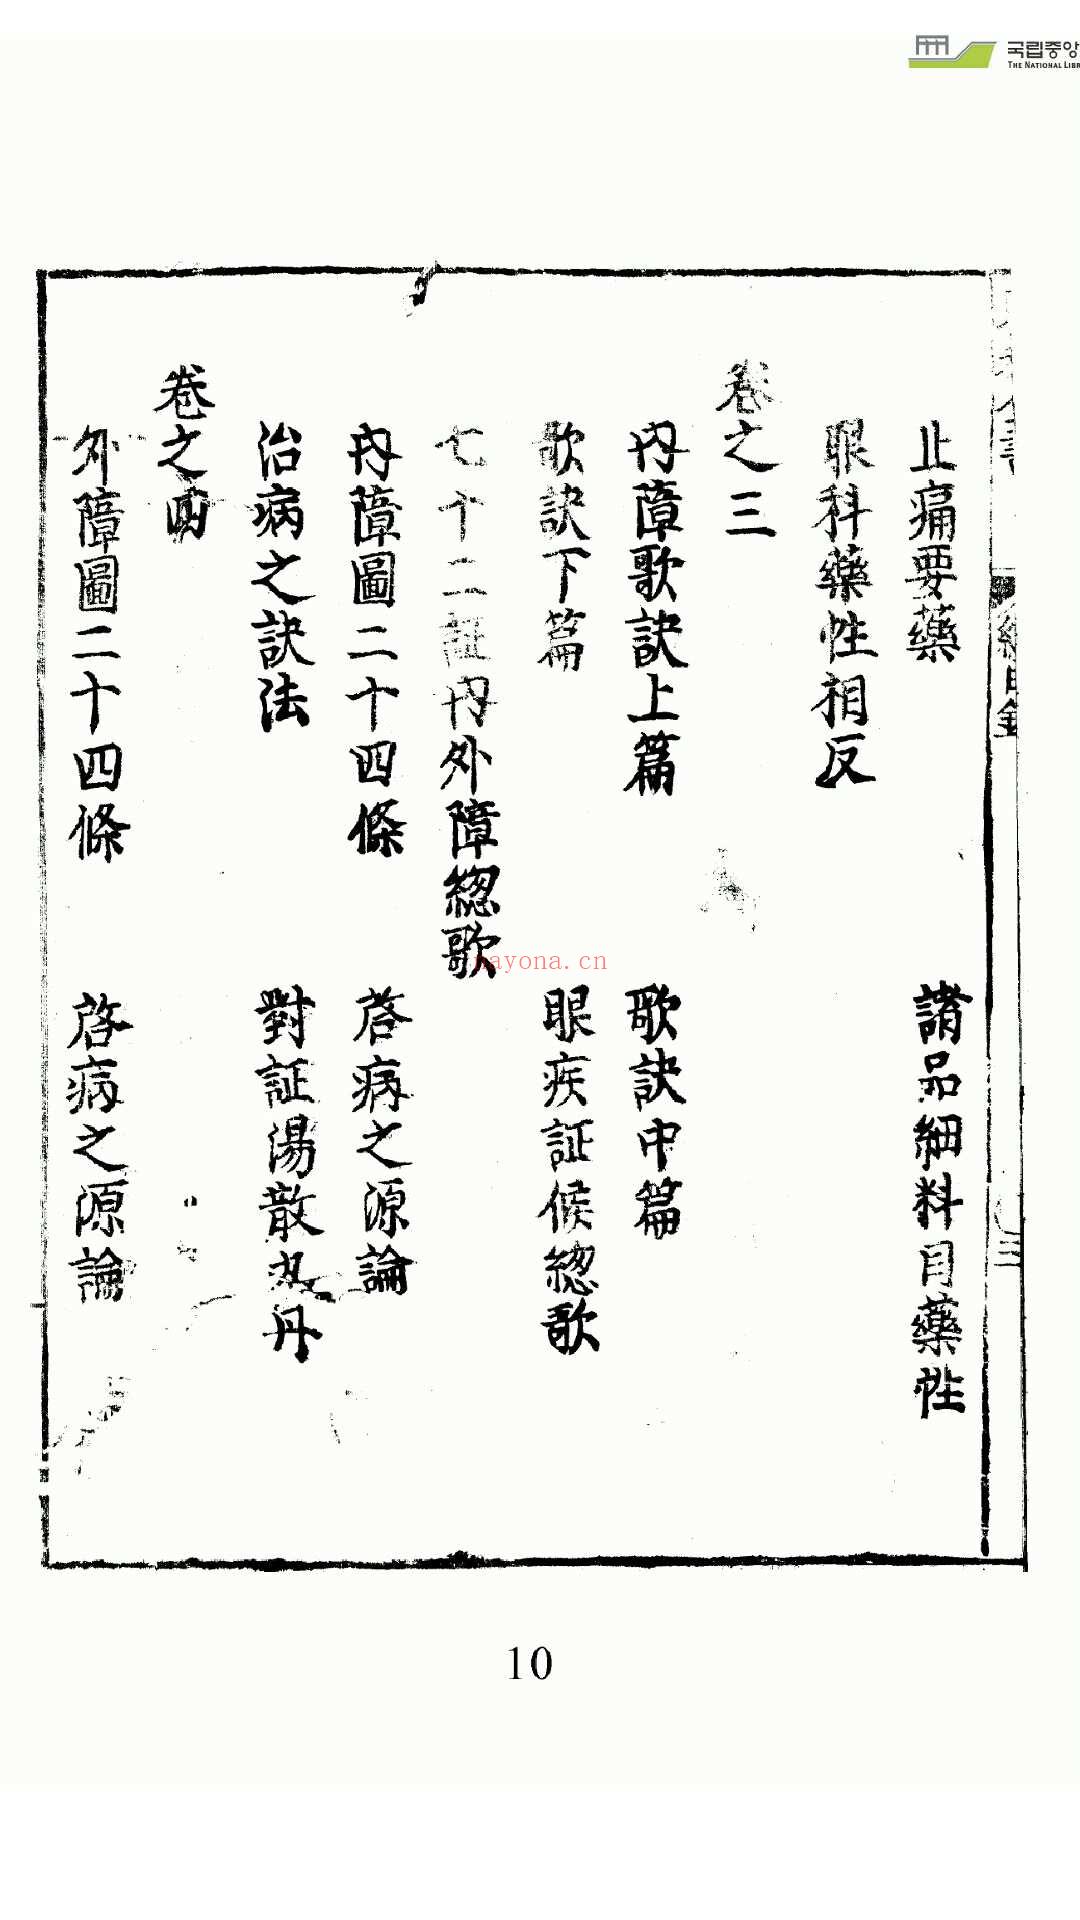 국립중앙
THE NATIONAL LIBR
總目錄
三
止痛要藥 諸品細料目藥性
眼科藥性相反
卷之三
內障歌訣上篇 歌訣中篇
歌訣下篇 眼疾証候總歌
七十二証內外障總歌
內障圖二十四條 啓病之源論
治病之訣法 對証湯散丸丹
卷之四
外障圖二十四條 啓病之源論
nayona.cn
10